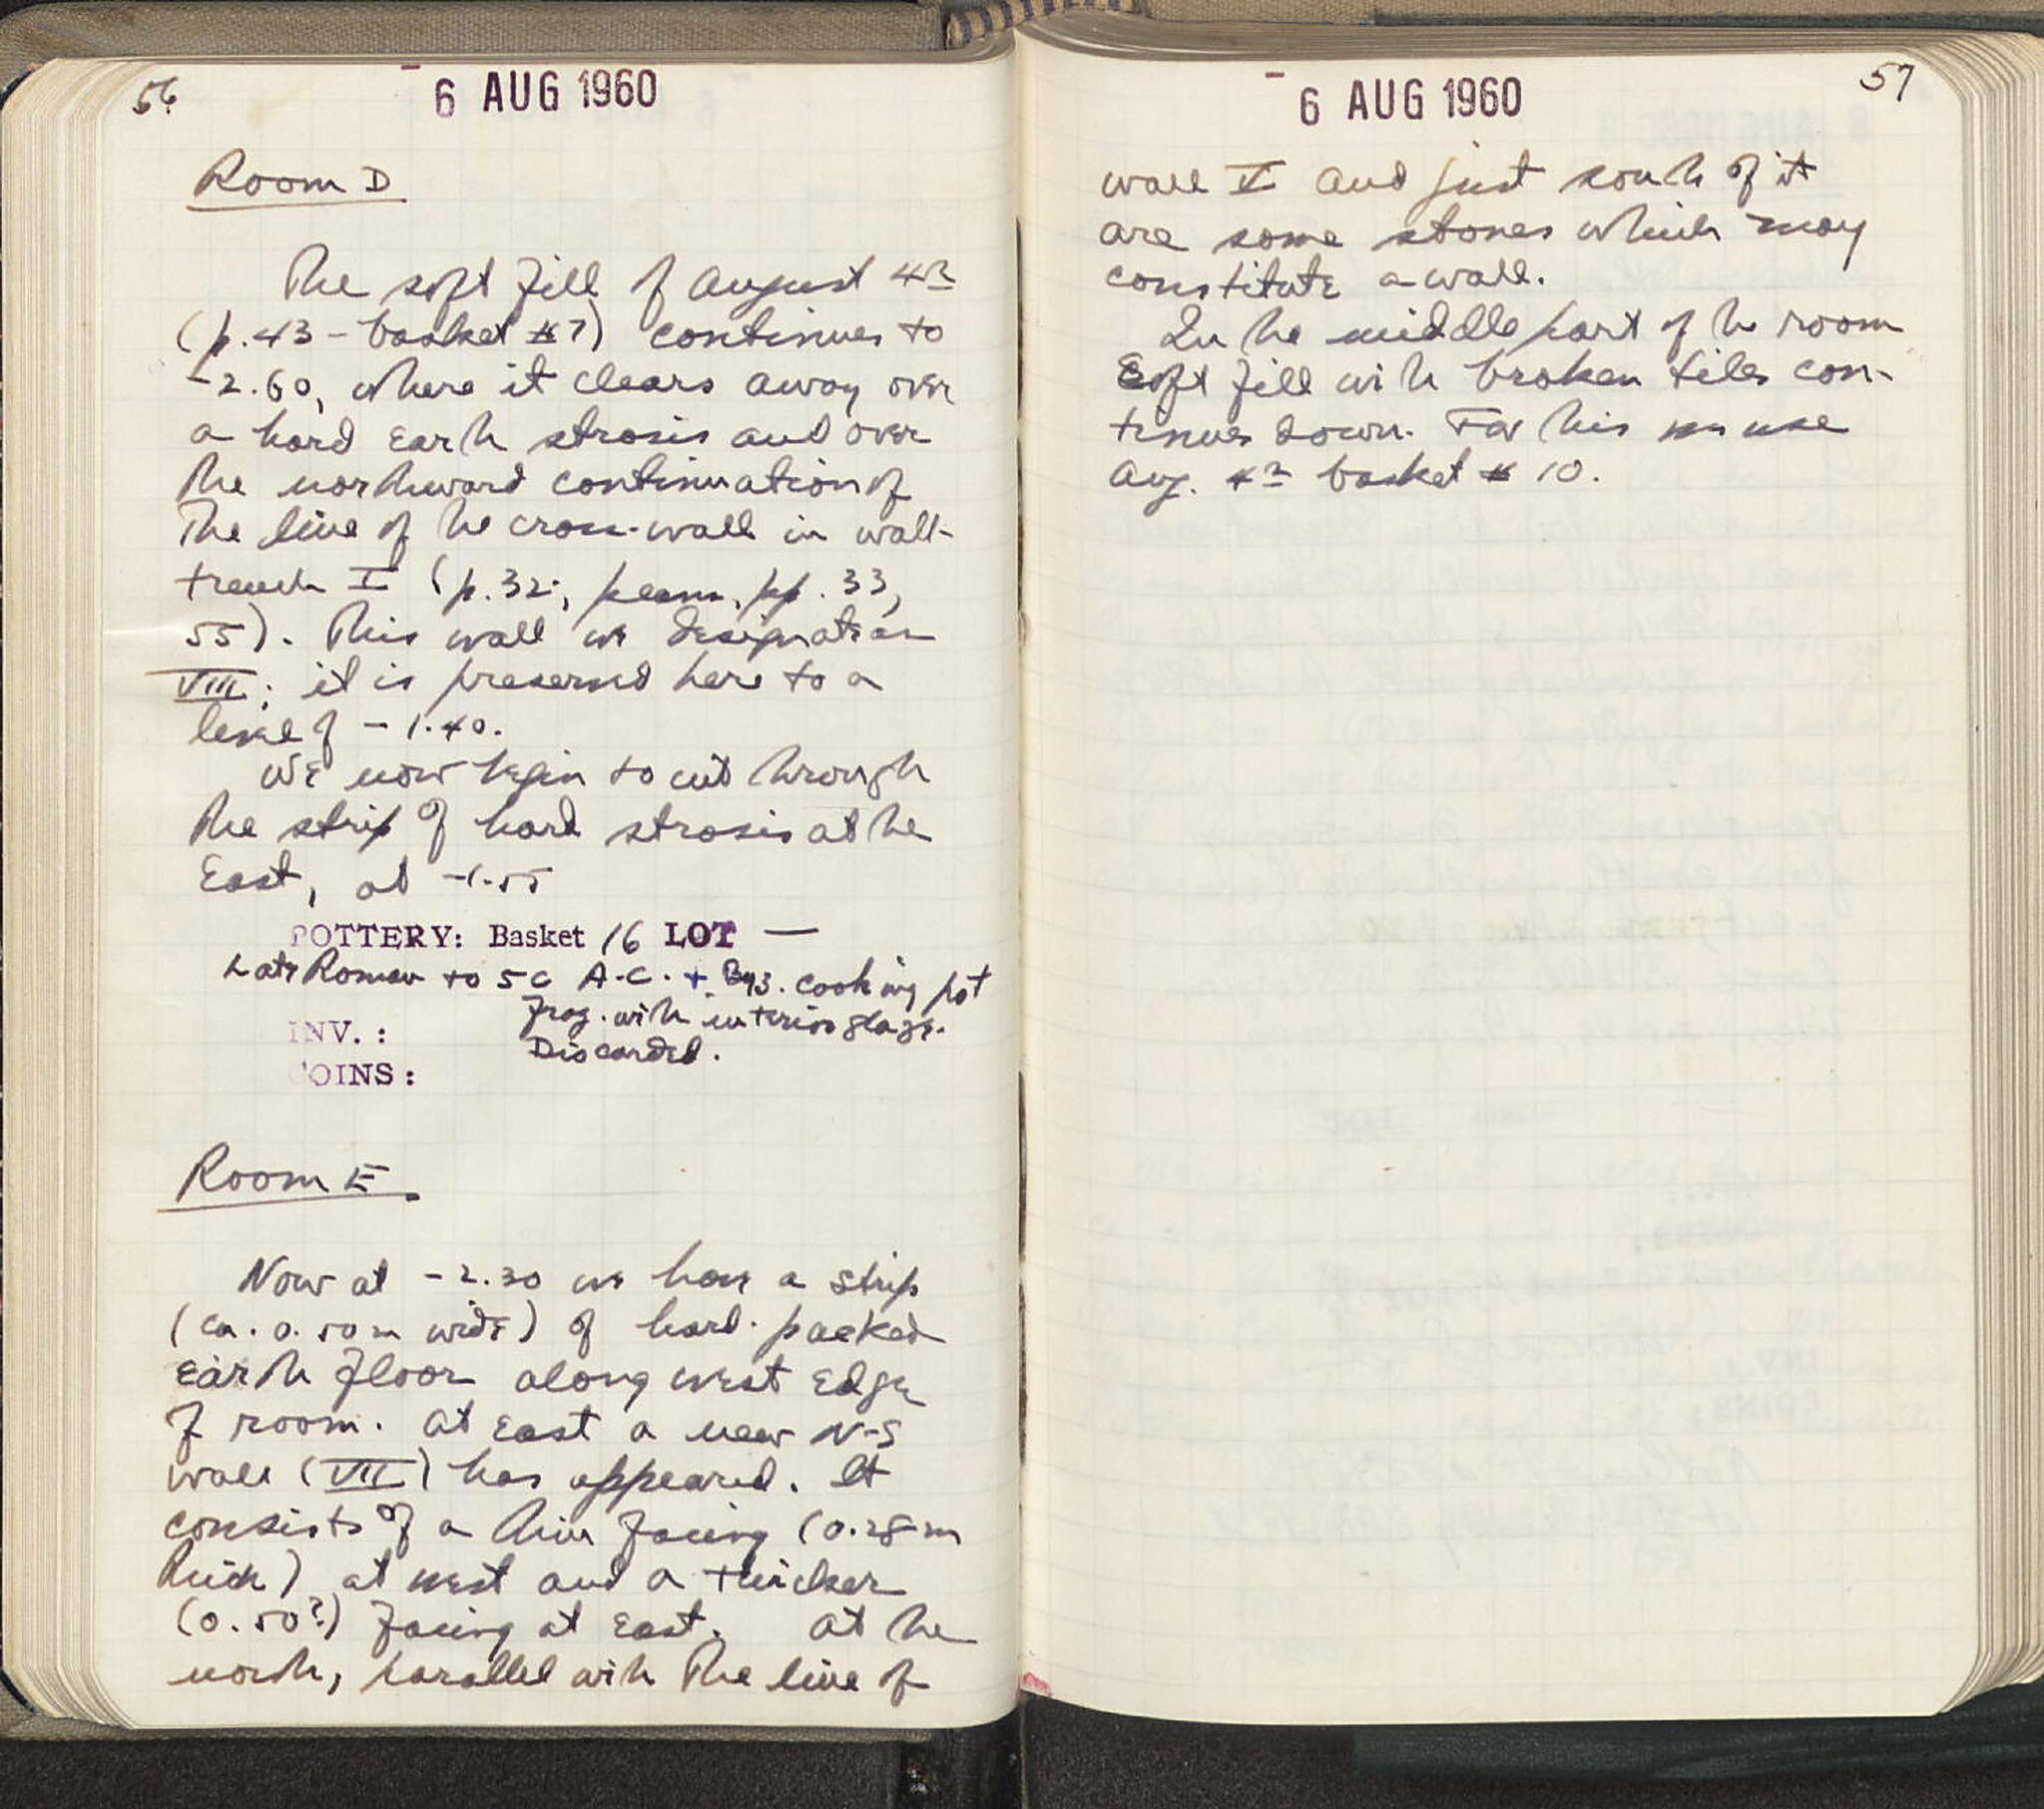 56
6 AUG 1960
Room D
The soft fill of August 4
(p. 43 - basket #7) continues to
-2.60, where it clears away over
a hard earth strosis and over
the northward continuation of
The line of the cross-wall in wall-
trench I (p. 32; plans, pp. 33,
55). This wall we designate as
VIII; it is preserved here to a
level of -1.40.
We now begin to cut through
the strip of hard strosis at the
East, at -1.55
POTTERY: Basket 16 LOT —
Late Roman to 5c A.C. + Byz. cooking pot
frag. with interior glaze.
Discarded.
INV.:
COINS:
Room E.
Now at -2.30 we have a strip
(ca. 0.50 m wide) of hard-packed
Earth floor along west Edge
of room. At East a new N-S
wall (VII) has appeared. It
consists of a thin facing (0.28 m
thick) at west and a thicker
(0.50?) facing at East. At the
north, parallel with The line of
57
6 AUG 1960
wall V and just south of it
are some stones which may
constitute a wall.
In the middle part of the room
Soft fill with broken tiles con-
tinues down. For this we use
Aug. 4 basket # 10.